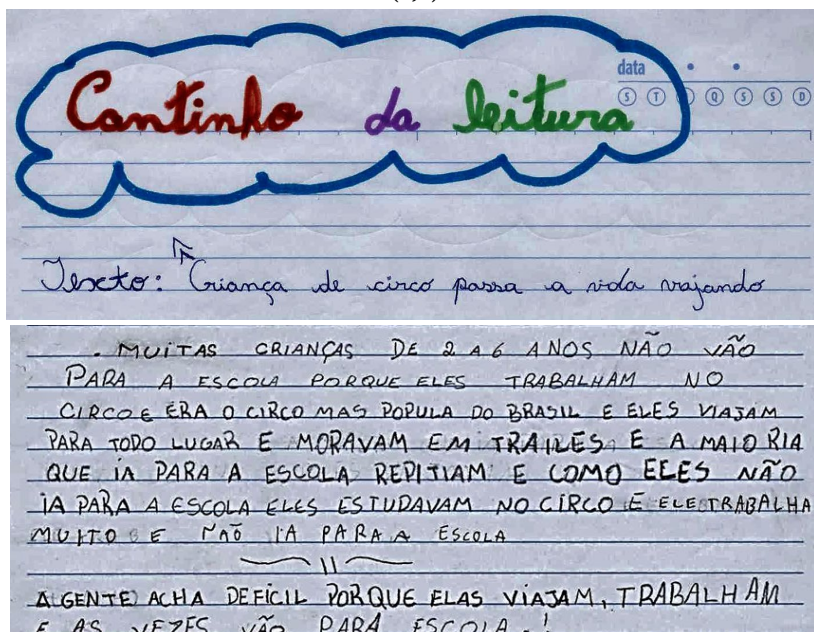 Cantinho da leitura
data
S T Q Q S S D
Texto: Criança de circo passa a vida viajando
. MUITAS CRIANÇAS DE 2 A 6 ANOS NÃO VÃO
PARA A ESCOLA PORQUE ELES TRABALHAM NO
CIRCO E ERA O CIRCO MAS POPULA DO BRASIL E ELES VIAJAM
PARA TODO LUGAR E MORAVAM EM TRAILES E A MAIORIA
QUE IA PARA A ESCOLA REPITIAM E COMO ELES NÃO
IA PARA A ESCOLA ELES ESTUDAVAM NO CIRCO E ELE TRABALHA
MUITO E NAÕ IA PARA A ESCOLA
A GENTE ACHA DEFÍCIL PORQUE ELAS VIAJAM, TRABALHAM
E AS VEZES VÃO PARA ESCOLA.!